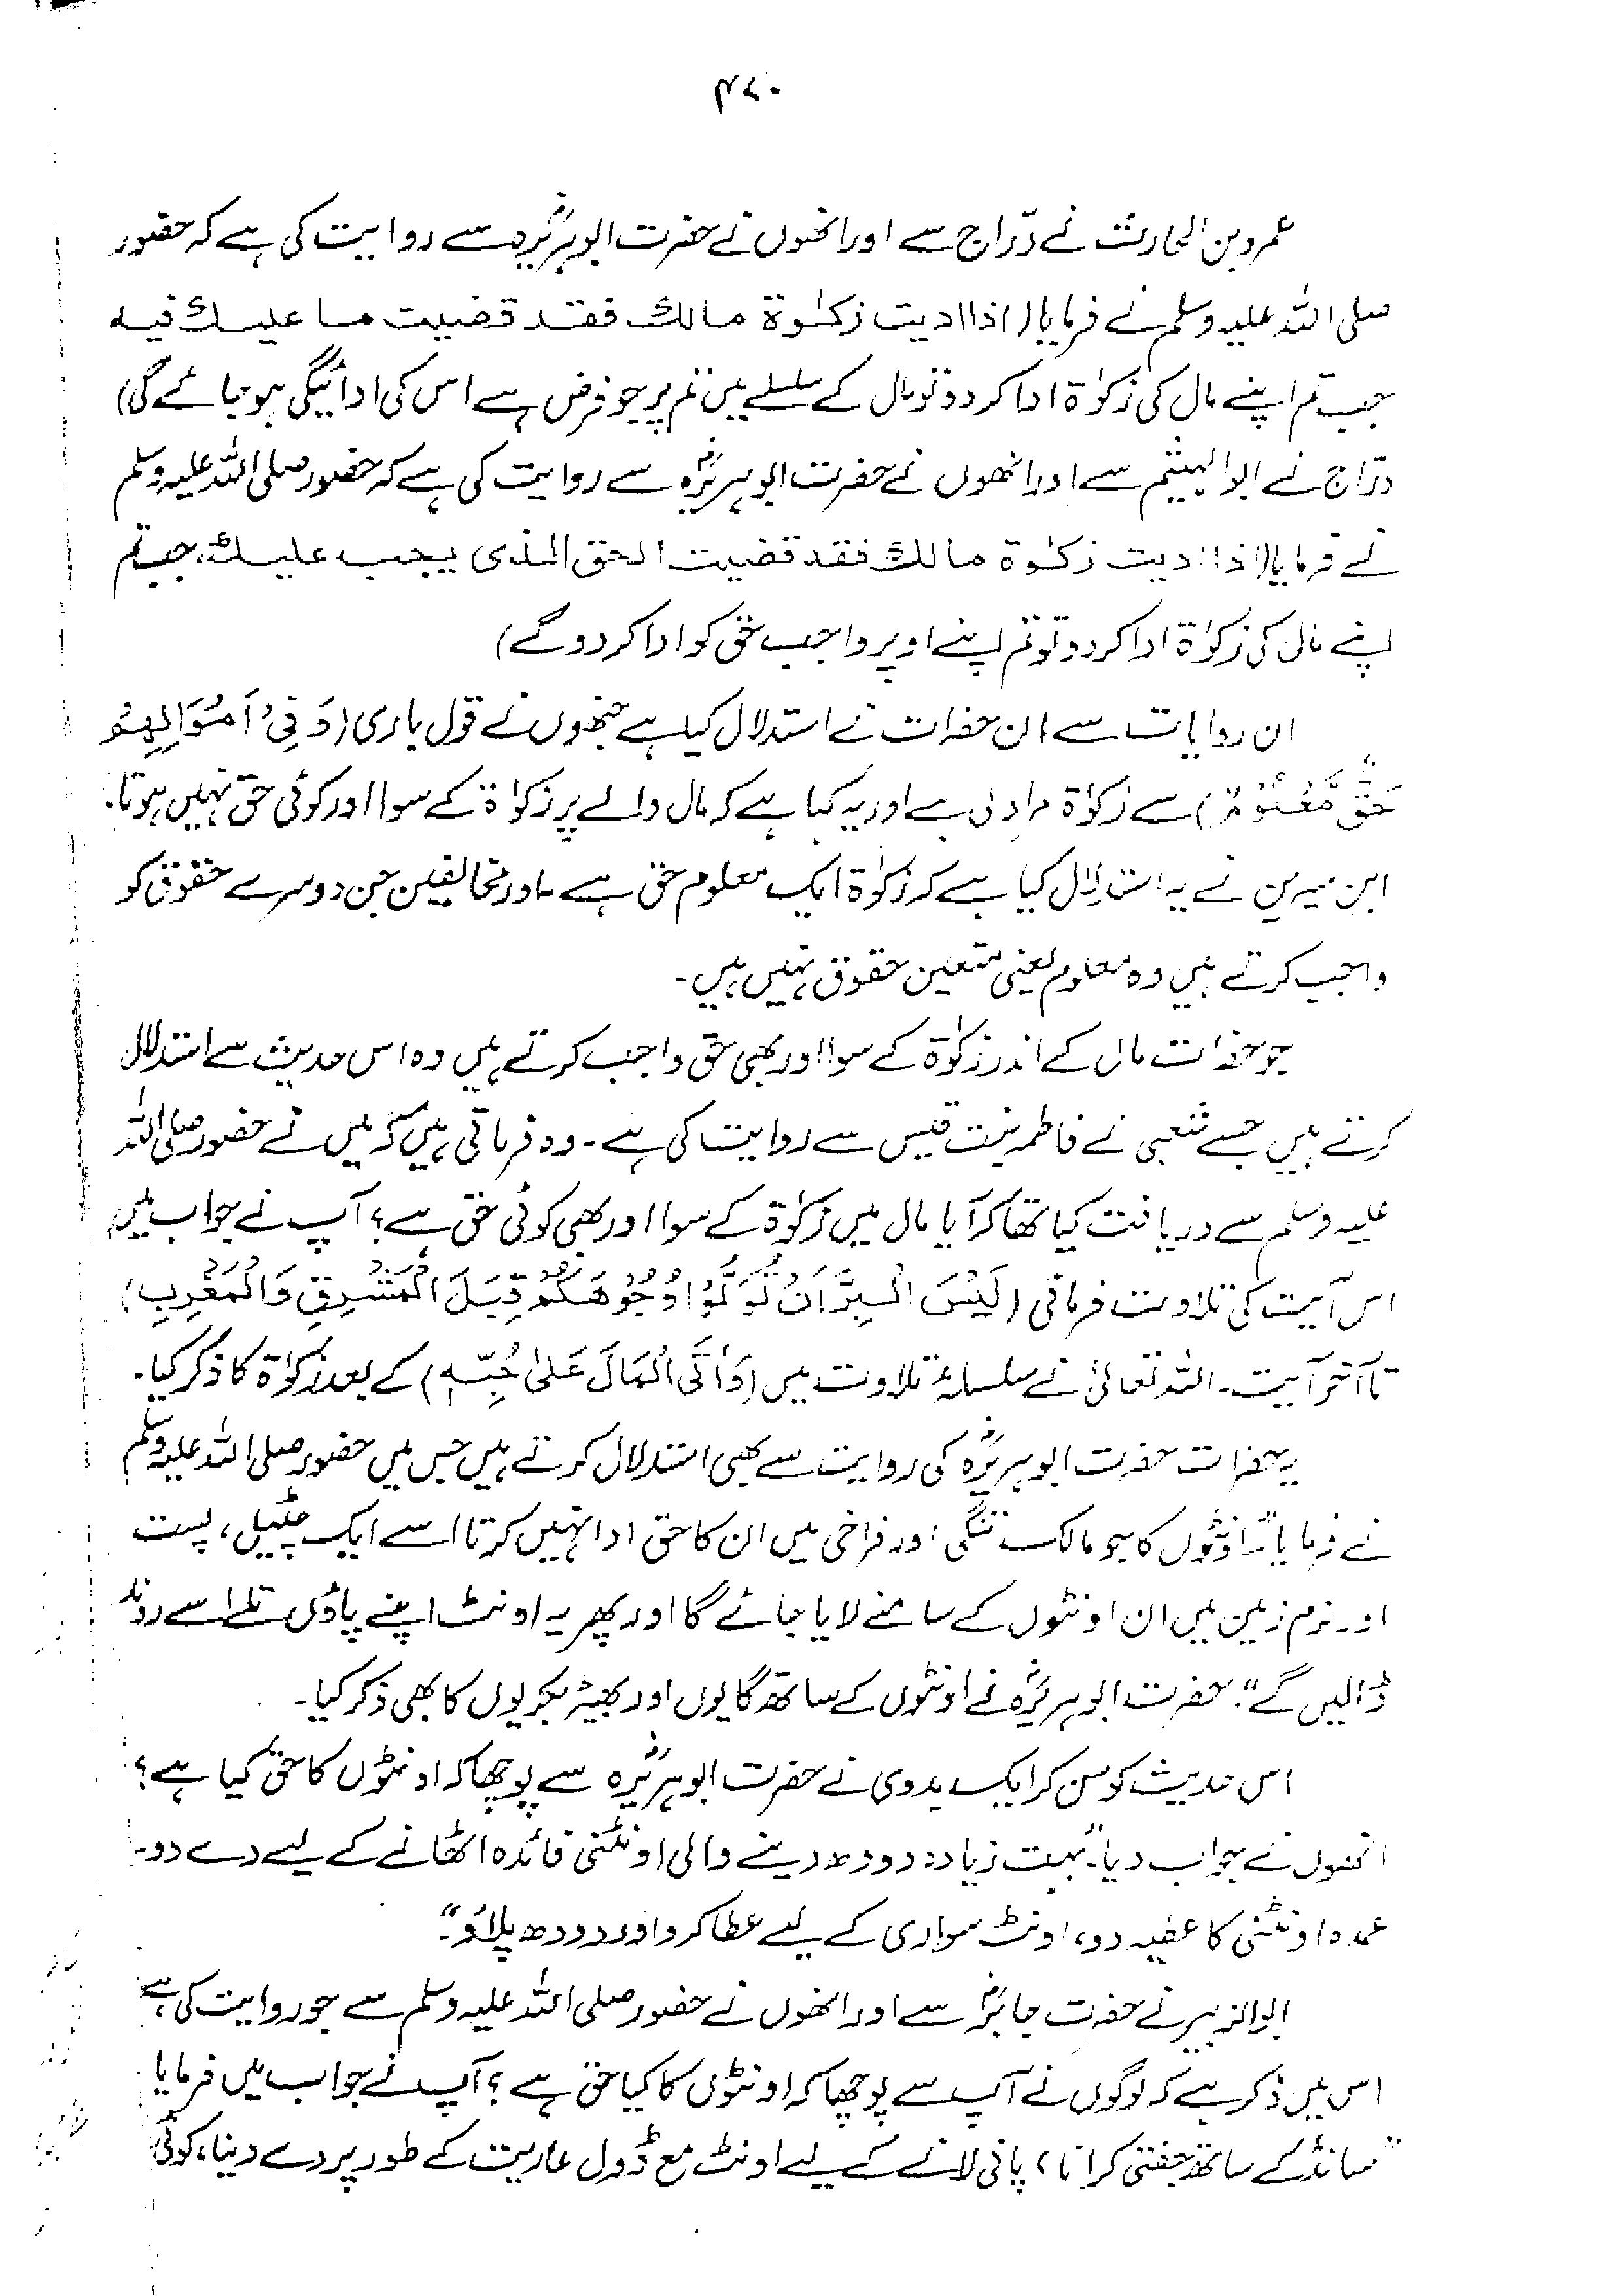 ۴۷۰
عمرو بن الحارث نے درّاج سے اور انھوں نے حضرت ابوہریرہؓ سے روایت کی ہے کہ حضور
صلی اللہ علیہ وسلم نے فرمایا (اذا ادیت زکوٰۃ مالک فقد قضیت ما علیک فیہ
جب تم اپنے مال کی زکوٰۃ ادا کردو تو مال کے سلسلے میں تم پر جو فرض ہے اس کی ادائیگی ہو جائے گی)
درّاج نے ابوالہیثم سے اور انھوں نے حضرت ابوہریرہؓ سے روایت کی ہے کہ حضور صلی اللہ علیہ وسلم
نے فرمایا (اذا ادیت زکوٰۃ مالک فقد قضیت الحق الذی یجب علیک، جب تم
اپنے مال کی زکوٰۃ ادا کردو تو تم اپنے اوپر واجب حق کو ادا کردو گے)
ان روایات سے ان حضرات نے استدلال کیا ہے جنھوں نے قول باری (وَفِیْ اَمْوَالِهِمْ
حَقٌّ مَّعْلُوْمٌ) سے زکوٰۃ مراد لی ہے اور یہ کہا ہے کہ مال والے پر زکوٰۃ کے سوا اور کوئی حق نہیں ہوتا۔
ابن سیرین نے یہ استدلال کیا ہے کہ زکوٰۃ ایک معلوم حق ہے ۔ اور مخالفین جن دوسرے حقوق کو
واجب کرتے ہیں وہ معلوم یعنی متعین حقوق نہیں ہیں۔
جو حضرات مال کے اندر زکوٰۃ کے سوا اور بھی حق واجب کرتے ہیں وہ اس حدیث سے استدلال
کرتے ہیں جسے شعبی نے فاطمہ بنت قیس سے روایت کی ہے۔ وہ فرماتی ہیں کہ میں نے حضور صلی اللہ
علیہ وسلم سے دریافت کیا تھا کہ آیا مال میں زکوٰۃ کے سوا اور بھی کوئی حق ہے؟ آپ نے جواب میں
اس آیت کی تلاوت فرمائی (لَیْسَ الْبِرَّ اَنْ تُوَلُّوْا وُجُوْهَکُمْ قِبَلَ الْمَشْرِقِ وَالْمَغْرِبِ)
تا آخر آیت۔ اللہ تعالیٰ نے سلسلۂ تلاوت میں (وَاٰتَی الْمَالَ عَلیٰ حُبِّہٖ) کے بعد زکوٰۃ کا ذکر کیا۔
یہ حضرات حضرت ابوہریرہؓ کی روایت سے بھی استدلال کرتے ہیں جس میں حضور صلی اللہ علیہ وسلم
نے فرمایا ”اونٹوں کا جو مالک تنگی اور فراخی میں ان کا حق ادا نہیں کرتا اسے ایک چٹیل، پست
اور نرم زمین میں ان اونٹوں کے سامنے لایا جائے گا اور پھر یہ اونٹ اپنے پاؤں تلے اسے روند
ڈالیں گے“۔ حضرت ابوہریرہؓ نے اونٹوں کے ساتھ گایوں اور بھیڑ بکریوں کا بھی ذکر کیا۔
اس حدیث کو سن کر ایک بدوی نے حضرت ابوہریرہؓ سے پوچھا کہ اونٹوں کا حق کیا ہے؟
انھوں نے جواب دیا۔ ”بہت زیادہ دودھ دینے والی اونٹنی فائدہ اٹھانے کے لیے دے دو۔
عمدہ اونٹنی کا عطیہ دو، اونٹ سواری کے لیے عطا کرو اور دودھ پلاؤ“۔
ابوالزبیر نے حضرت جابرؓ سے اور انھوں نے حضور صلی اللہ علیہ وسلم سے جو روایت کی ہے
اس میں ذکر ہے کہ لوگوں نے آپ سے پوچھا کہ اونٹوں کا کیا حق ہے؟ آپ نے جواب میں فرمایا
”سانڈ کے ساتھ جفتی کرانا، پانی لانے کے لیے اونٹ مع ڈول عاریت کے طور پر دے دینا، کوئی